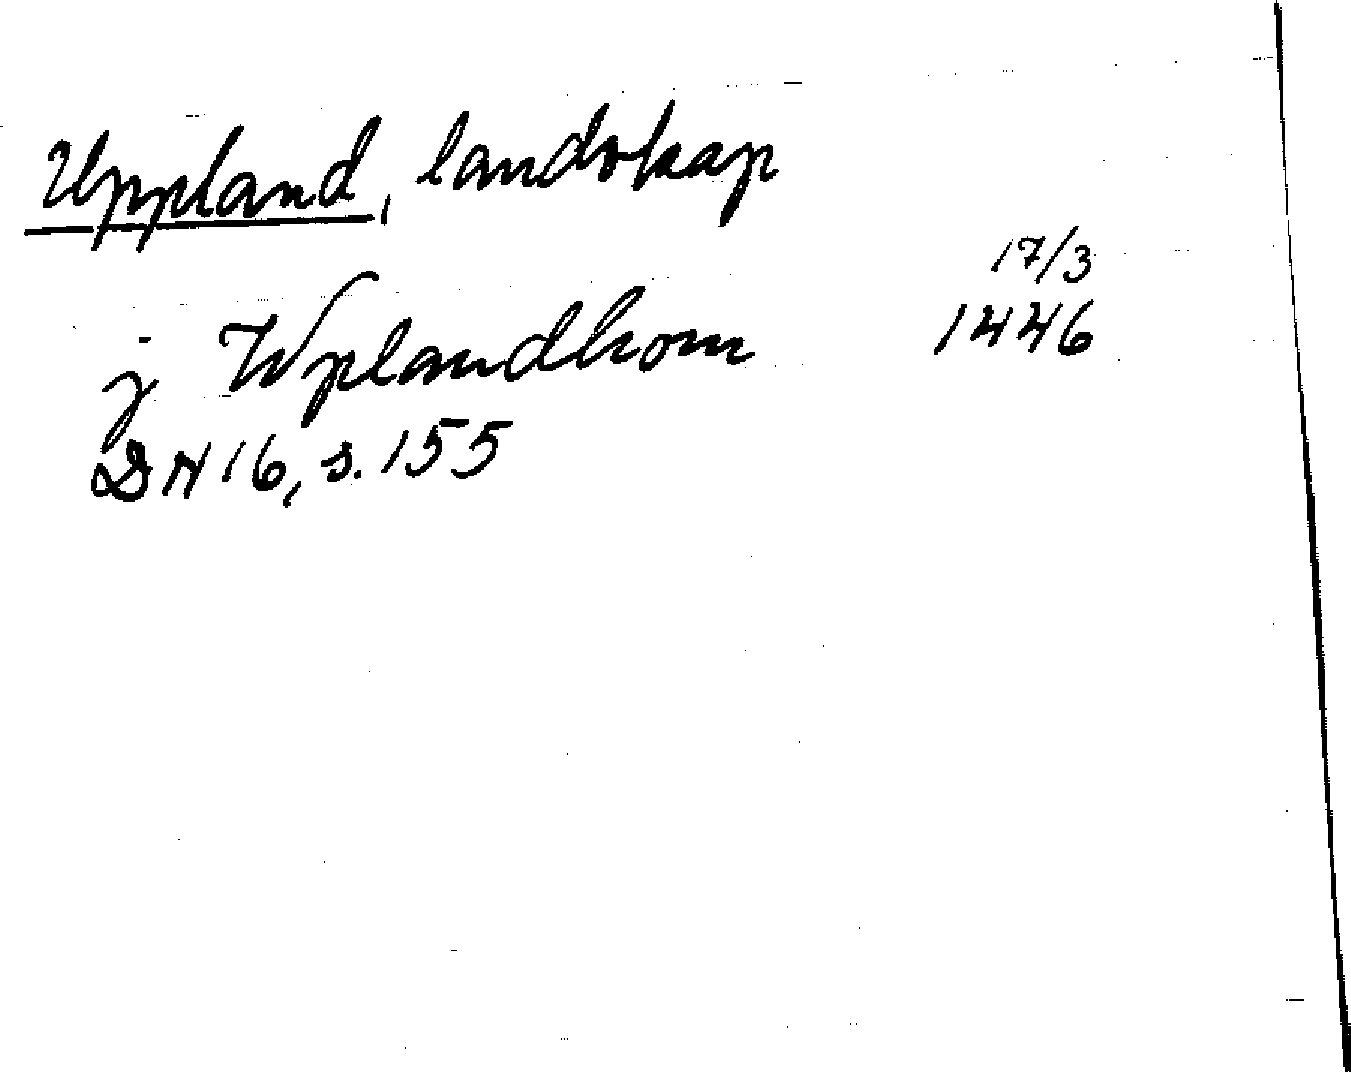 Uppland, landskap
17/3
j Wplandhom 1446
DN 16, s. 155